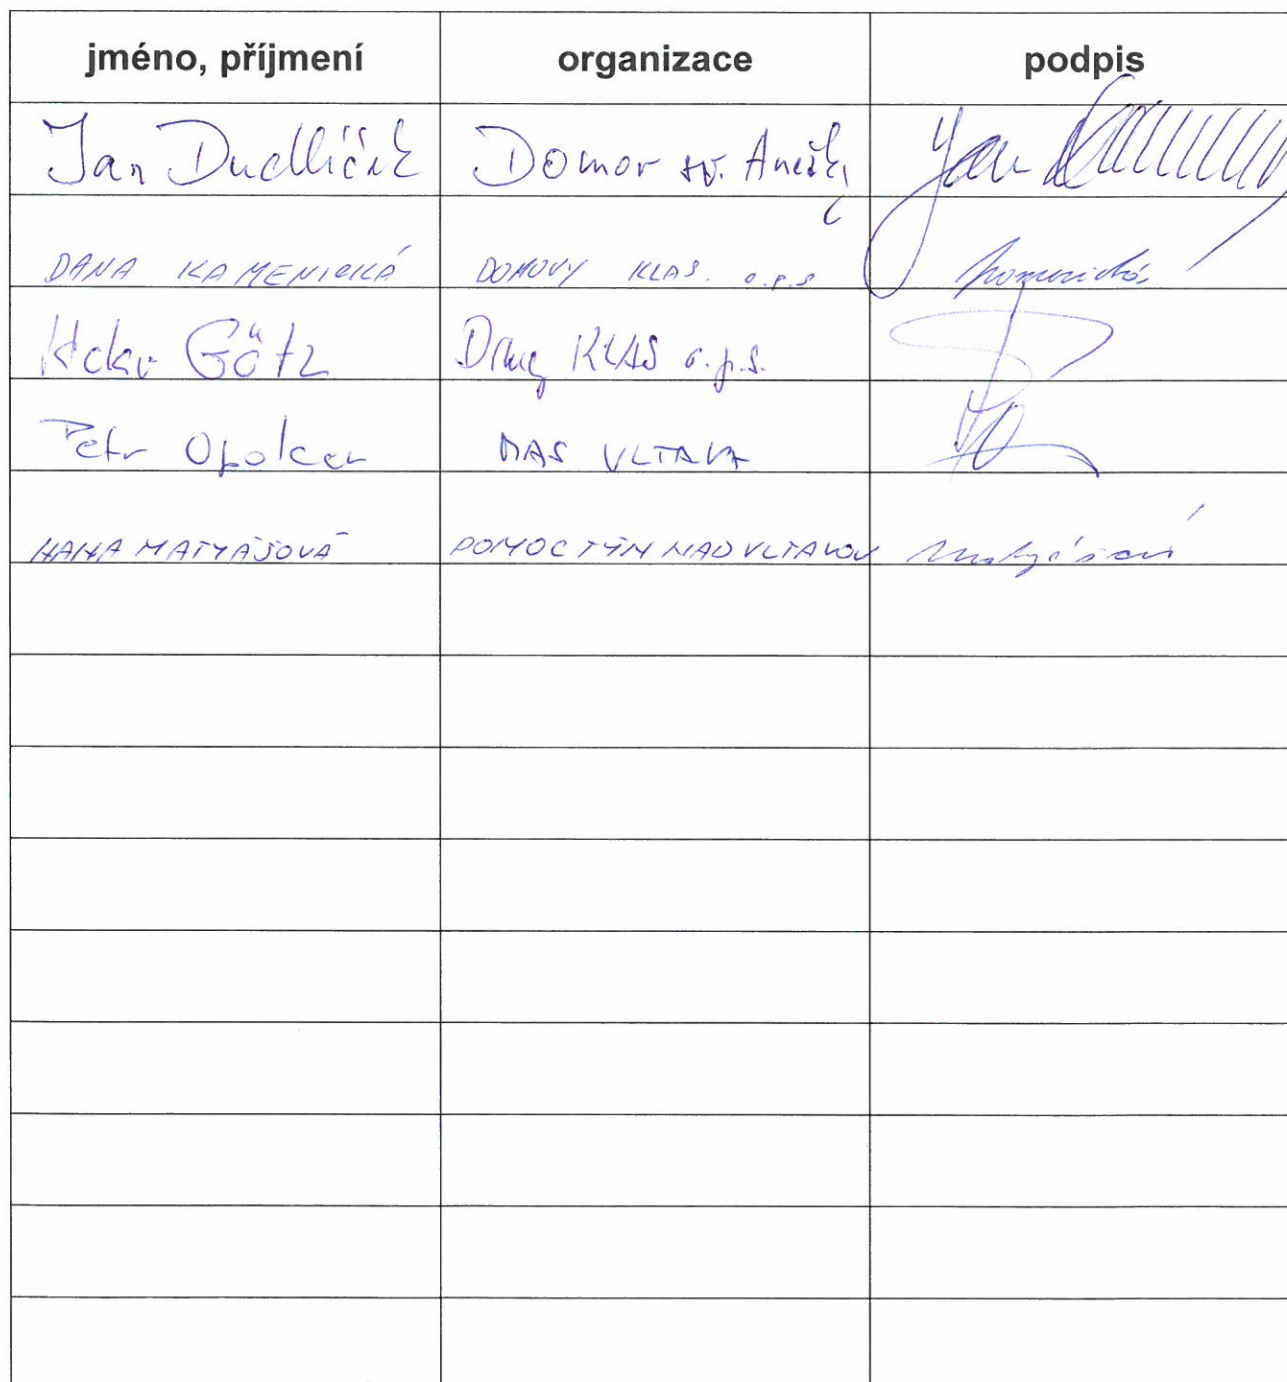 jméno, příjmení organizace podpis
Jan Dudlíček Domov sv. Anežky Jan
DANA KAMENICKÁ DOMOVY KLAS o.p.s Kamenická
Götz KLAS o.p.s.
Petr Opolcer MAS VLTAVA
HANA MATYÁŠOVÁ POMOC TÝN NAD VLTAVOU Matyášová